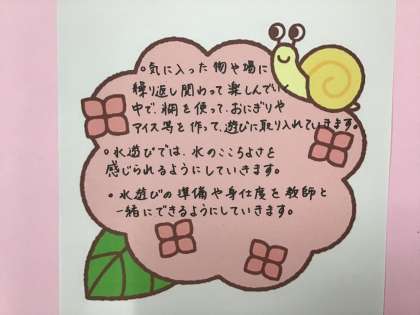 ・気に入った物や場に
繰り返し関わって楽しんでい
中で、糊を使って、おにぎりや
アイス等を作って、遊びに取り入れていきます。
・水遊びでは、水のここちよさを
感じられるようにしていきます。
・水遊びの準備や身仕度を教師と
一緒にできるようにしていきます。